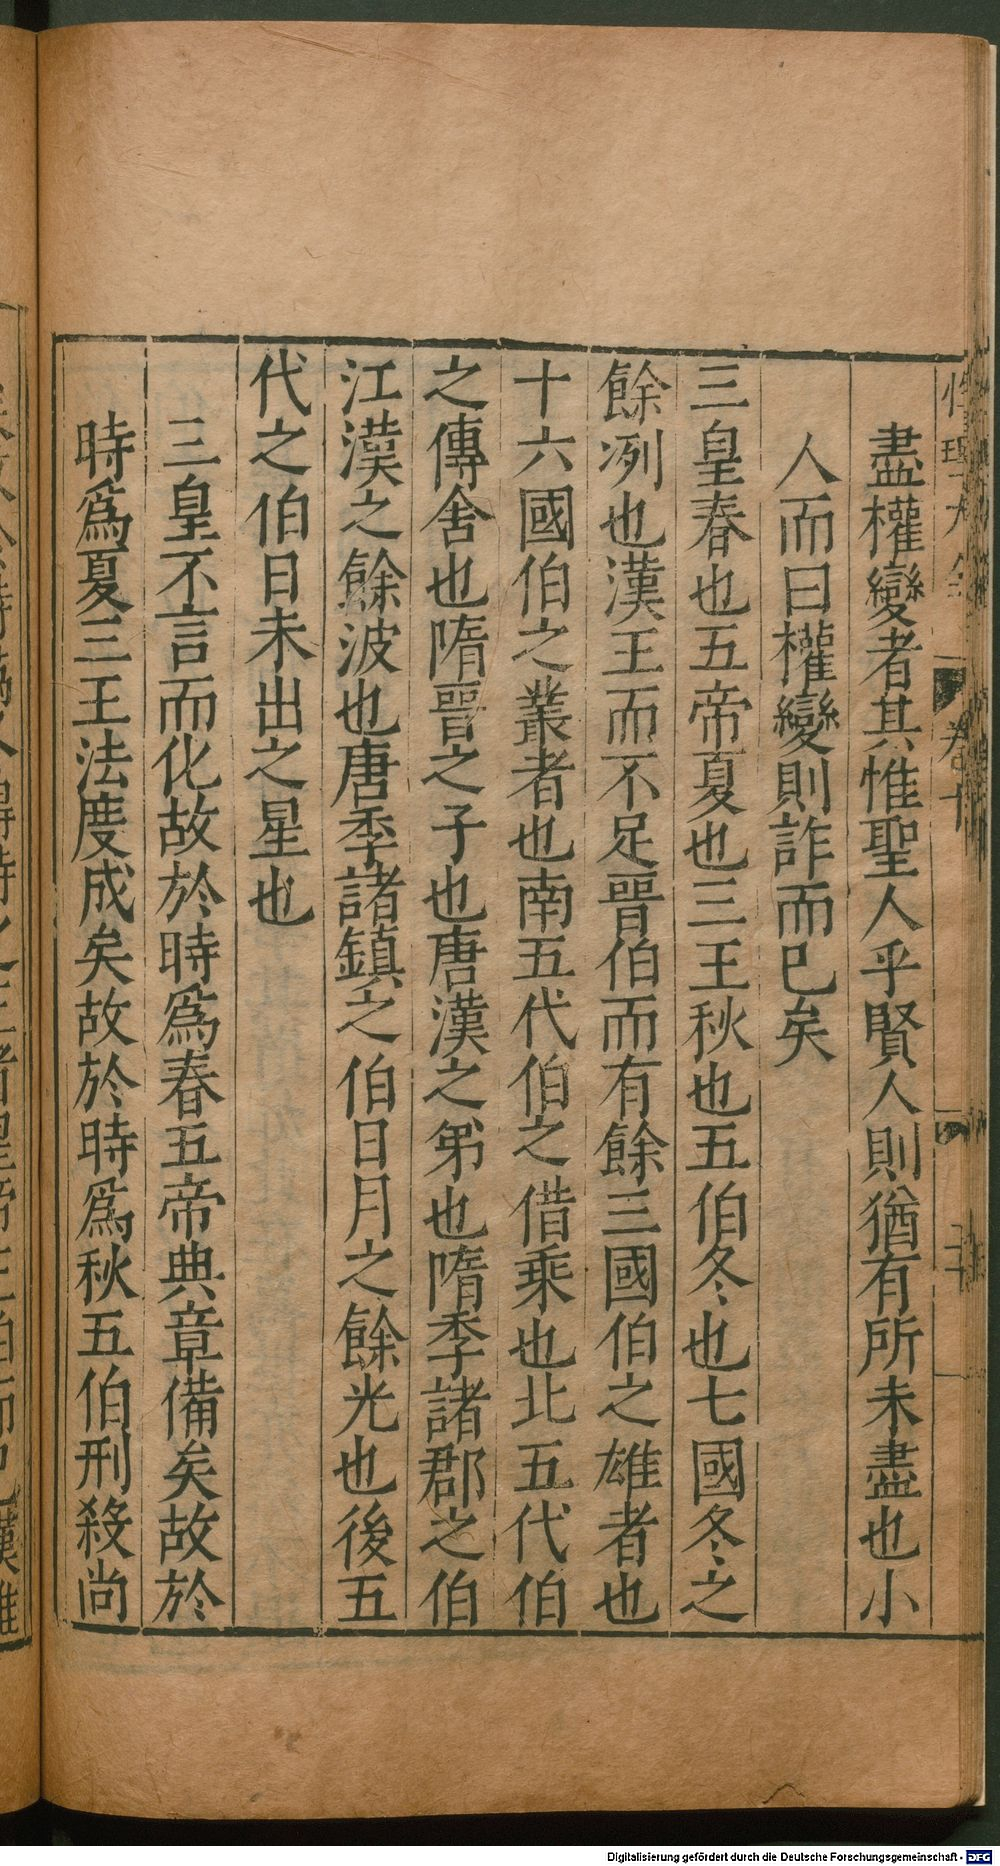 性理大全 卷十
盡權變者其惟聖人乎賢人則猶有所未盡也小
人而曰權變則詐而已矣
三皇春也五帝夏也三王秋也五伯冬也七國冬之
餘冽也漢王而不足晉伯而有餘三國伯之雄者也
十六國伯之叢者也南五代伯之借乘也北五代伯
之傳舍也隋晉之子也唐漢之弟也隋季諸郡之伯
江漢之餘波也唐季諸鎮之伯日月之餘光也後五
代之伯日未出之星也
三皇不言而化故於時爲春五帝典章備矣故於
時爲夏三王法度成矣故於時爲秋五伯刑殺尚
Digitalisierung gefördert durch die Deutsche Forschungsgemeinschaft - DFG